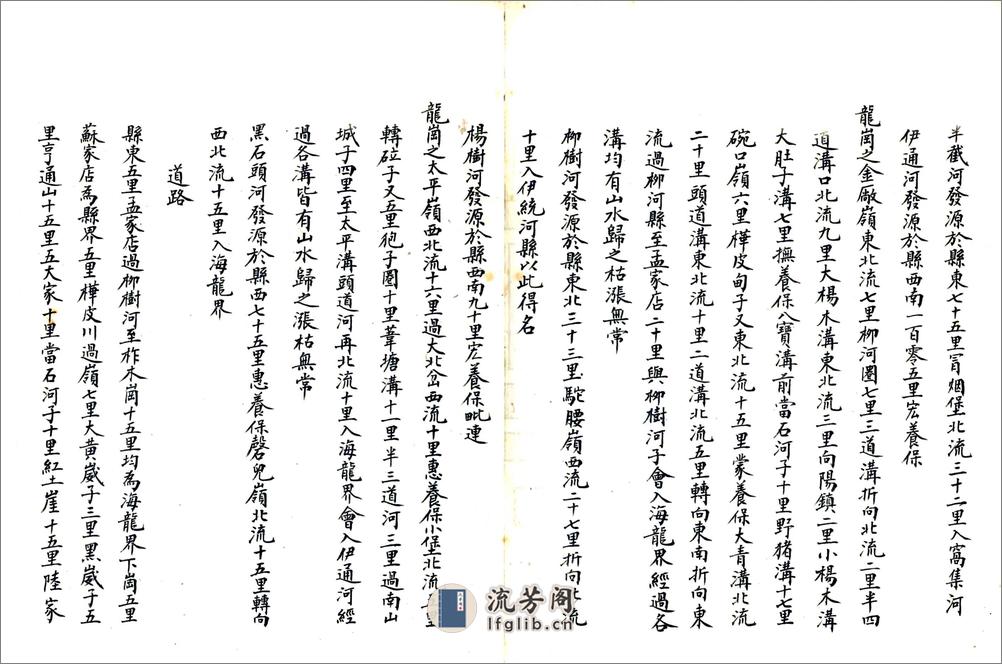 半截河發源於縣東七十五里冒烟堡北流三十二里入窩集河
伊通河發源於縣西南一百零五里宏養保
龍崗之金廠嶺東北流七里柳河圈七里三道溝折向北流二里半四
道溝口北流九里大楊木溝東北流三里向陽鎮二里小楊木溝
大肚子溝七里撫養保八寶溝前當石河子十里野猪溝十七里
碗口嶺六里樺皮甸子又東北流十五里蒙養保大青溝北流
二十里頭道溝東北流十里二道溝北流五里轉向東南折向東
流過柳河縣至孟家店二十里與柳樹河子會入海龍界經過各
溝均有山水歸之枯漲無常
柳樹河發源於縣東北三十三里駝腰嶺西流二十七里折向北流
十里入伊統河縣以此得名
楊樹河發源於縣西南九十里宏養保毗連
龍崗之太平嶺西北流十六里過大北岔西流十里惠養保小堡北流
轉砬子又五里狍子圈十里葦塘溝十一里半三道河三里過南山
城子四里至太平溝頭道河再北流十里入海龍界會入伊通河經
過各溝皆有山水歸之漲枯無常
黑石頭河發源於縣西七十五里惠養保磬兒嶺北流十五里轉向
西北流十五里入海龍界
道路
縣東五里孟家店過柳樹河至柞木崗十五里均為海龍界下崗五里
蘇家店為縣界五里樺皮川過嶺七里大黃崴子三里黑崴子五
里亨通山十五里五大家十里當石河子十里紅土崖十五里陸家
流芳阁
lfglib.cn